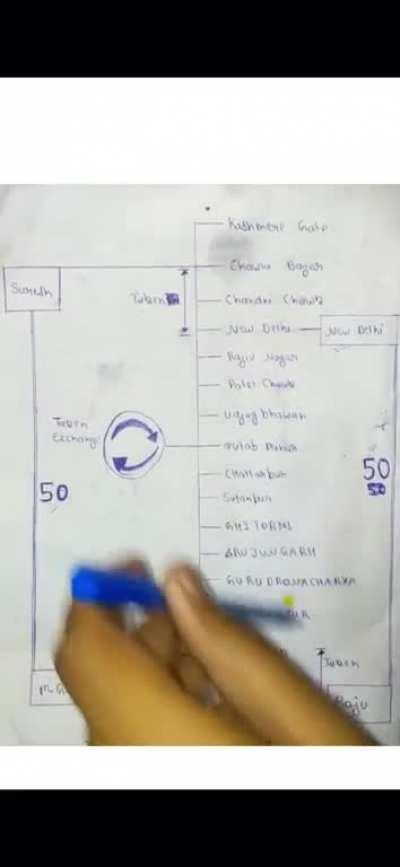 Kashmere Gate
Chawri Bazar
Suresh
Token
Chandni Chowk
New Delhi
New Delhi
Rajiv Nagar
Patel Chowk
Udyog bhawan
Token
Exchange
Qutab Minar
50
50
Chattarpur
50
Sultanpur
GHITORNI
ARJUNGARH
GURU DRONACHARYA
UR
Token
M.G
Raju